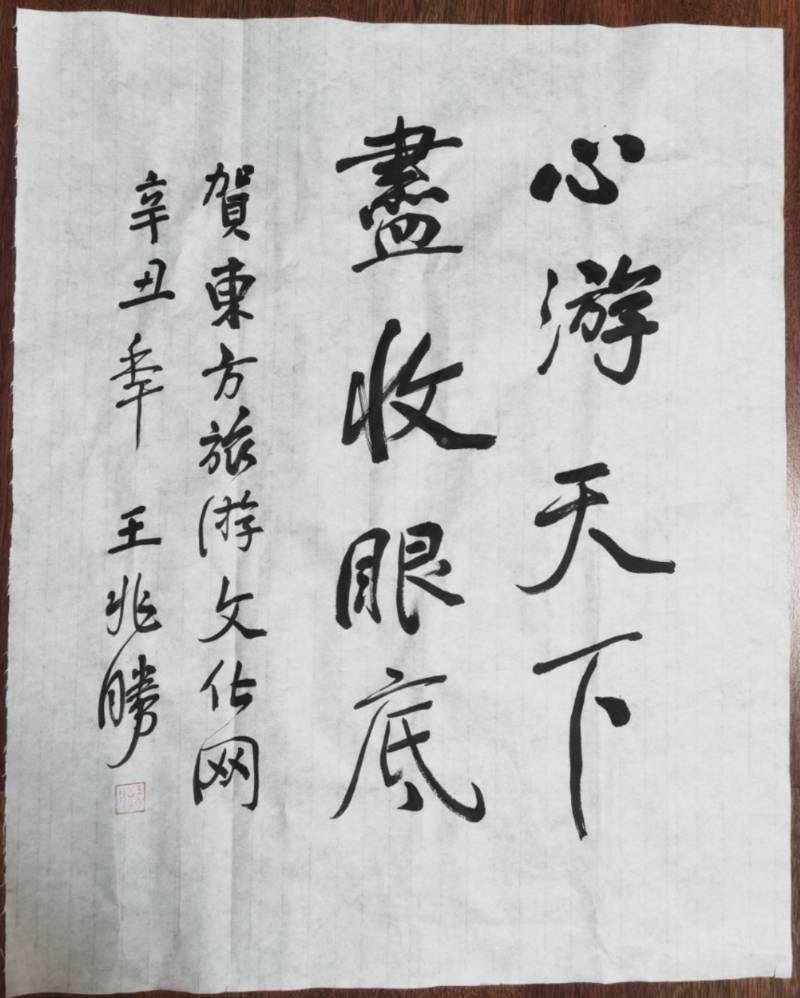 心游天下
盡收眼底
賀東方旅游文化网
辛丑季 王兆勝